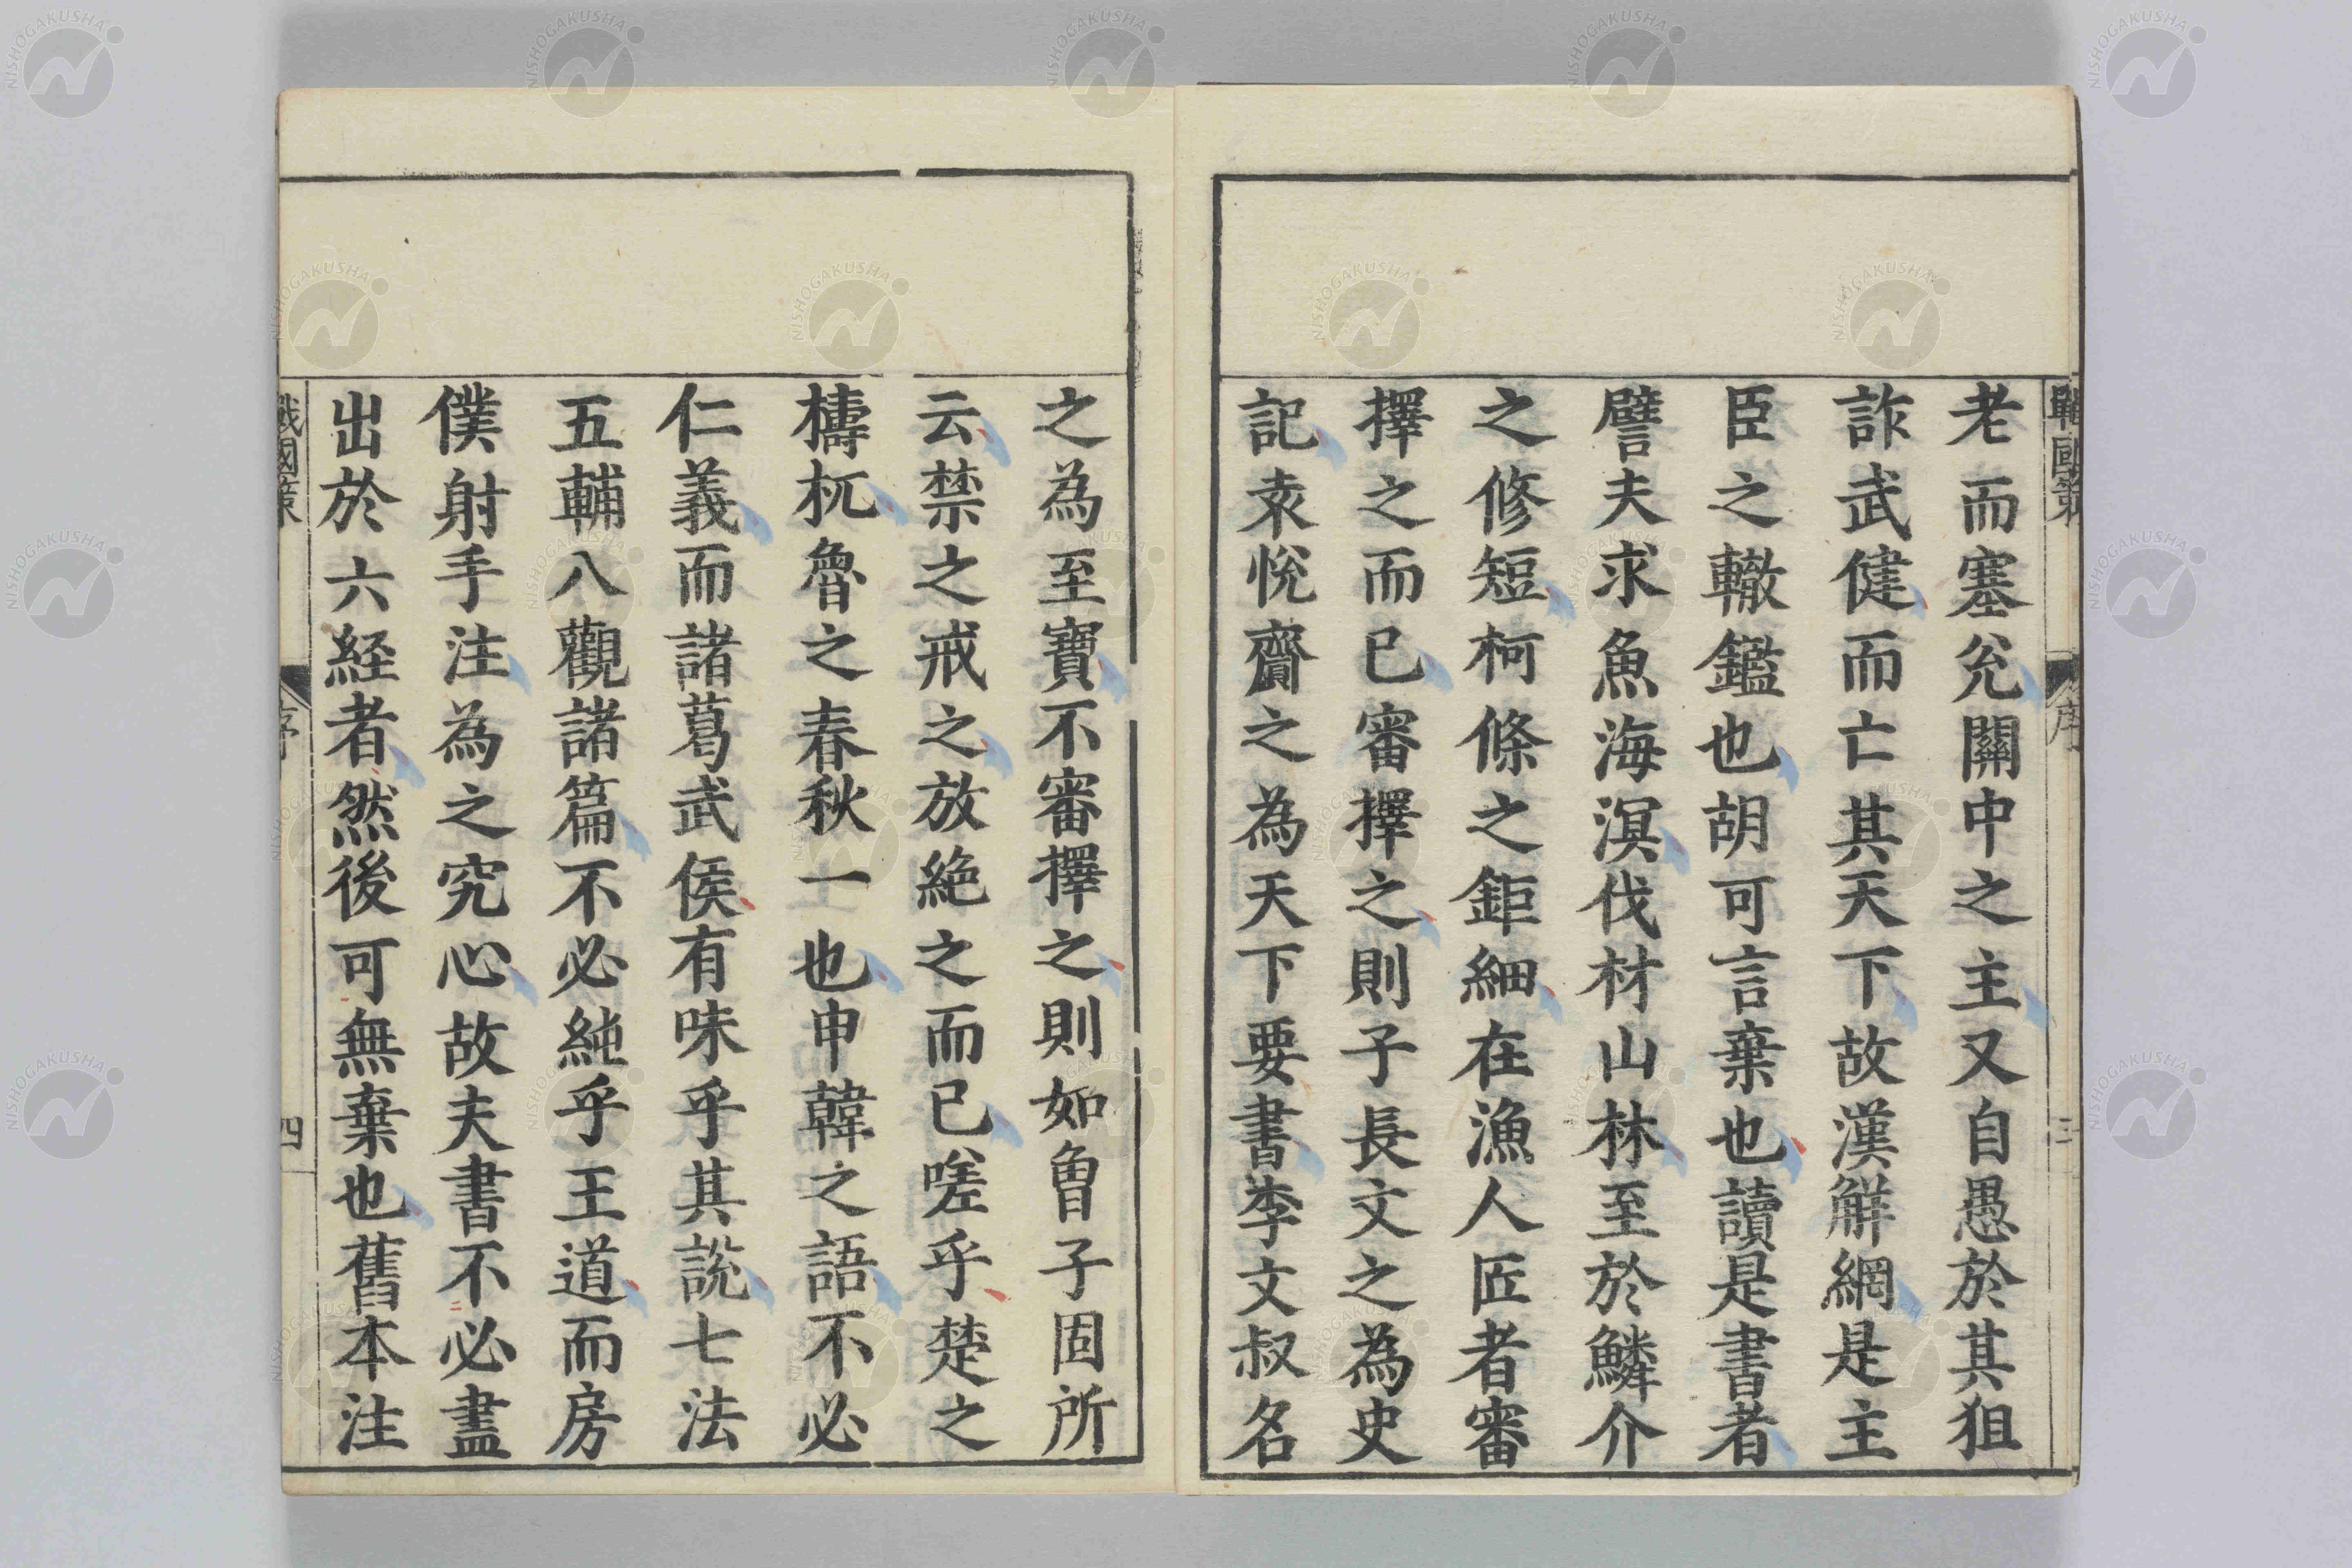 戰國策 序 三
老而塞兊關中之主又自愚於其狙
詐武健而亡其天下故漢解網是主
臣之轍鑑也胡可言棄也讀是書者
譬夫求魚海溟伐材山林至於鱗介
之修短柯條之鉅細在漁人匠者審
擇之而已審擇之則子長文之為史
記袁悅齎之為天下要書李文叔名
之為至寶不審擇之則如曾子固所
云禁之戒之放絶之而已嗟乎楚之
檮杌魯之春秋一也申韓之語不必
仁義而諸葛武侯有味乎其說七法
五輔八觀諸篇不必純乎王道而房
僕射手注為之究心故夫書不必盡
出於六経者然後可無棄也舊本注
戰國策 序 四
NISHOGAKUSHA